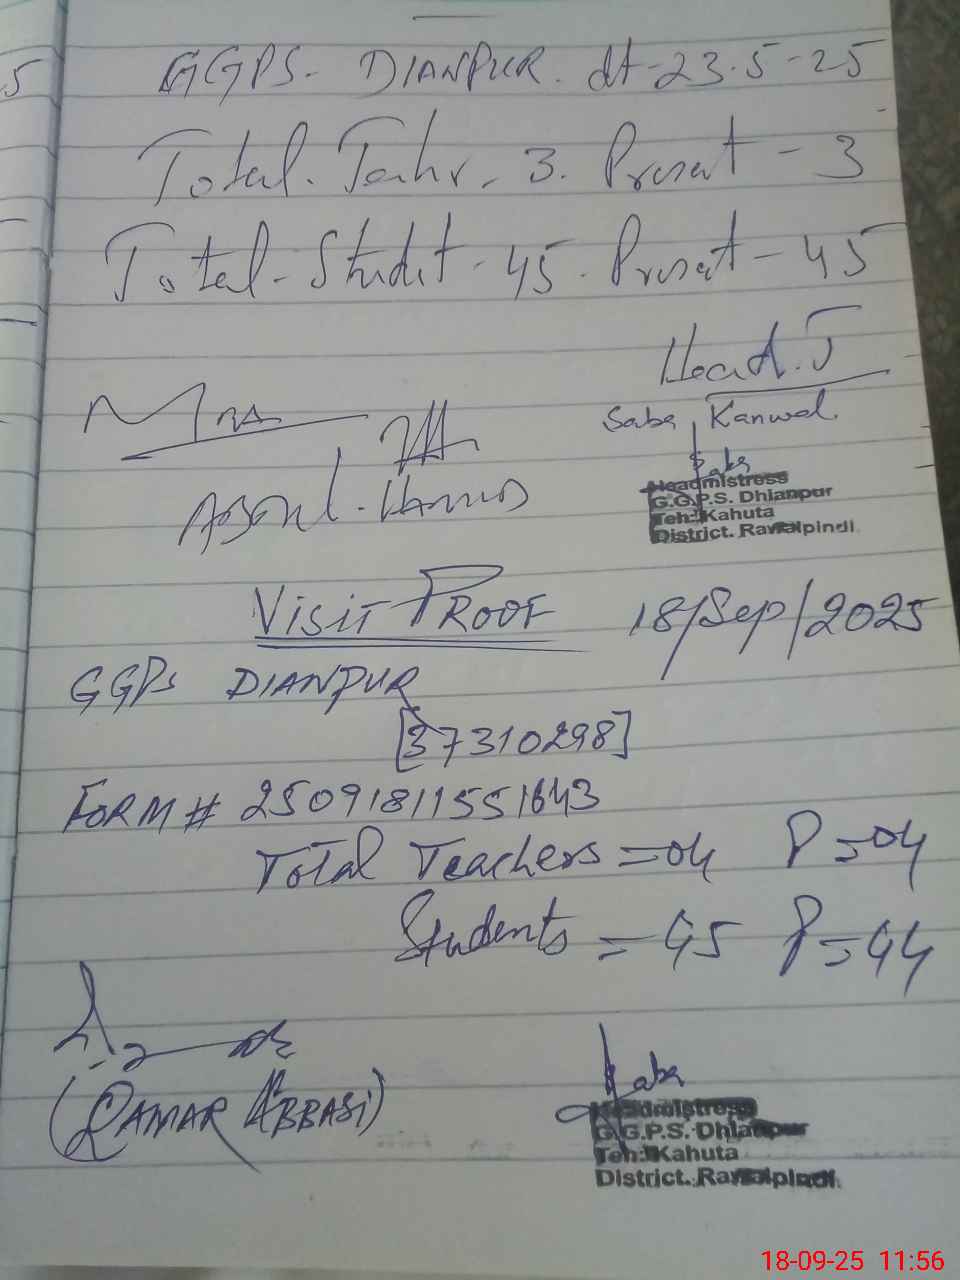 5
GGPS. DIANPUR. dt-23.5-25
Total. Teahr. 3. Presat - 3
Total-Studet-45. Presat-45
Head.T
Saba Kanwal
Saba
Headmistress
G.G.P.S. Dhianpur
Teh: Kahuta
District. Rawalpindi.
VISIT PROOF 18/Sep/2025
GGPS DIANPUR
[37310298]
FORM # 25091811551643
Total Teachers = 04 P = 04
Students = 45 P = 44
(QAMAR ABBASI)
Saba
Headmistress
G.G.P.S. Dhianpur
Teh: Kahuta
District. Rawalpindi.
18-09-25 11:56